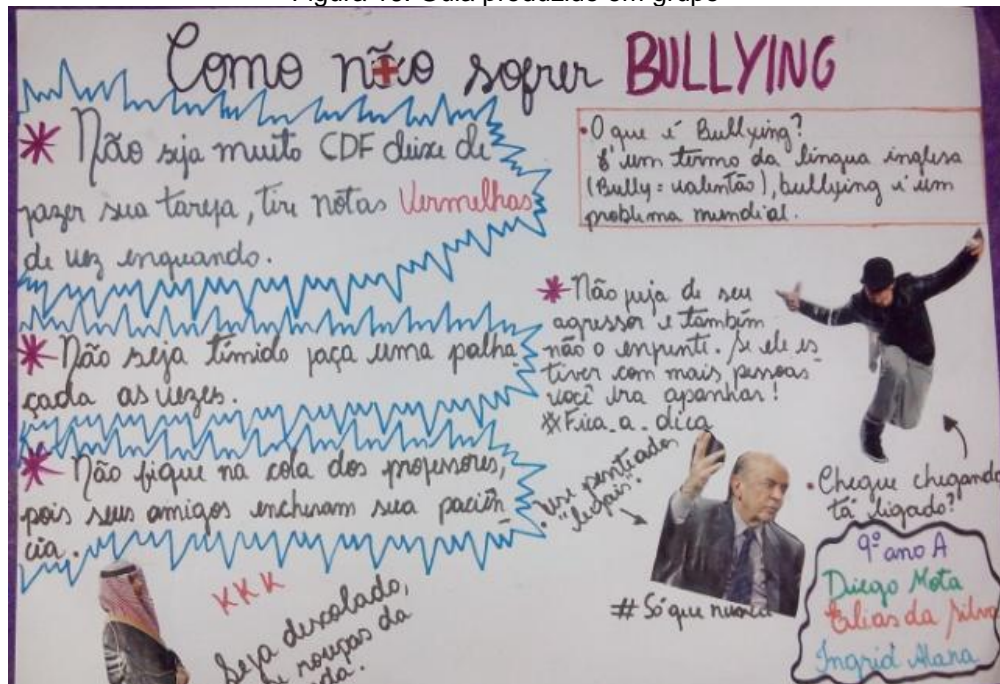 Figura 18: Guia produzido em grupo
Como não sofrer BULLYING
* Não seja muito CDF deixe de
fazer sua tarefa, tire notas Vermelhas
de vez enquando.
* Não seja tímido faça uma palha_
çada as vezes.
* Não fique na cola dos professores,
pois seus amigos encheram sua paciên_
cia.
KKK
Seja descolado,
roupas da
• O que é Bullying?
É um termo da língua inglesa
(Bully = valentão), bullying é um
problema mundial.
* Não fuja de seu
agressor e também
não o enfrente. Se ele es_
tiver com mais pessoas
você ira apanhar!
* Fica_a_dica
• Use penteados
"legais".
# Só que nunca
• Chegue chegando
tá ligado?
9º ano A
Diego Mota
Elias da Silva
Ingrid Alana